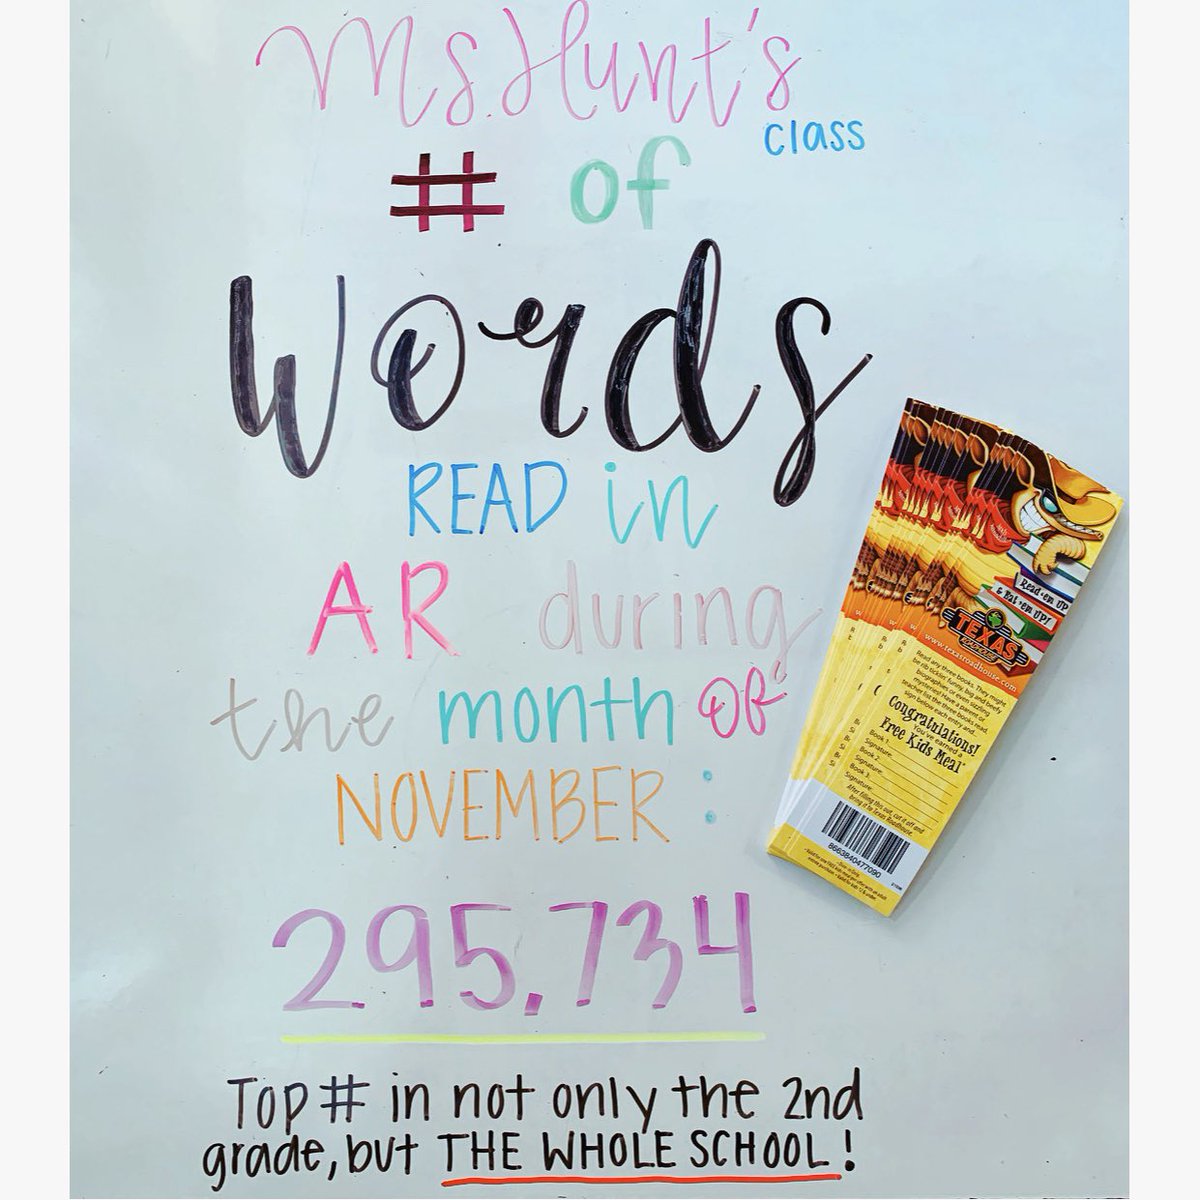 Ms. Hunt's
class
# of
Words
READ in
AR during
the month OF
NOVEMBER :
295,734
Top # in not only the 2nd
grade, but THE WHOLE SCHOOL!
Read 'em UP
& Eat 'em UP!
TEXAS
ROADHOUSE
www.texasroadhouse.com
Read any three books. They might
be rib ticklin' funny, big and beefy
biographies or even sizzling
mysteries! Have a parent or
teacher list the three books read,
sign below each entry and...
Congratulations!
You've earned a
Free Kids Meal*
Book 1
Signature
Book 2
Signature
Book 3
Signature
After filling this out, cut it off and
bring it to Texas Roadhouse.
8663840477090